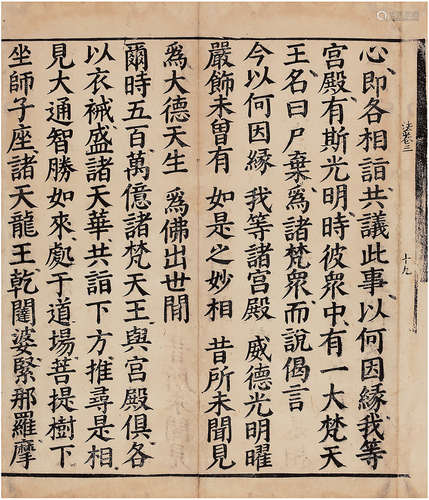 心即各相詣共議此事以何因緣我等
宮殿有斯光明時彼衆中有一大梵天
王名曰尸棄爲諸梵衆而說偈言
今以何因緣 我等諸宮殿 威德光明曜
嚴飾未曾有 如是之妙相 昔所未聞見
爲大德天生 爲佛出世間
爾時五百萬億諸梵天王與宮殿俱各
以衣裓盛諸天華共詣下方推尋是相
見大通智勝如來處于道場菩提樹下
坐師子座諸天龍王乾闥婆緊那羅摩
法卷三
十九